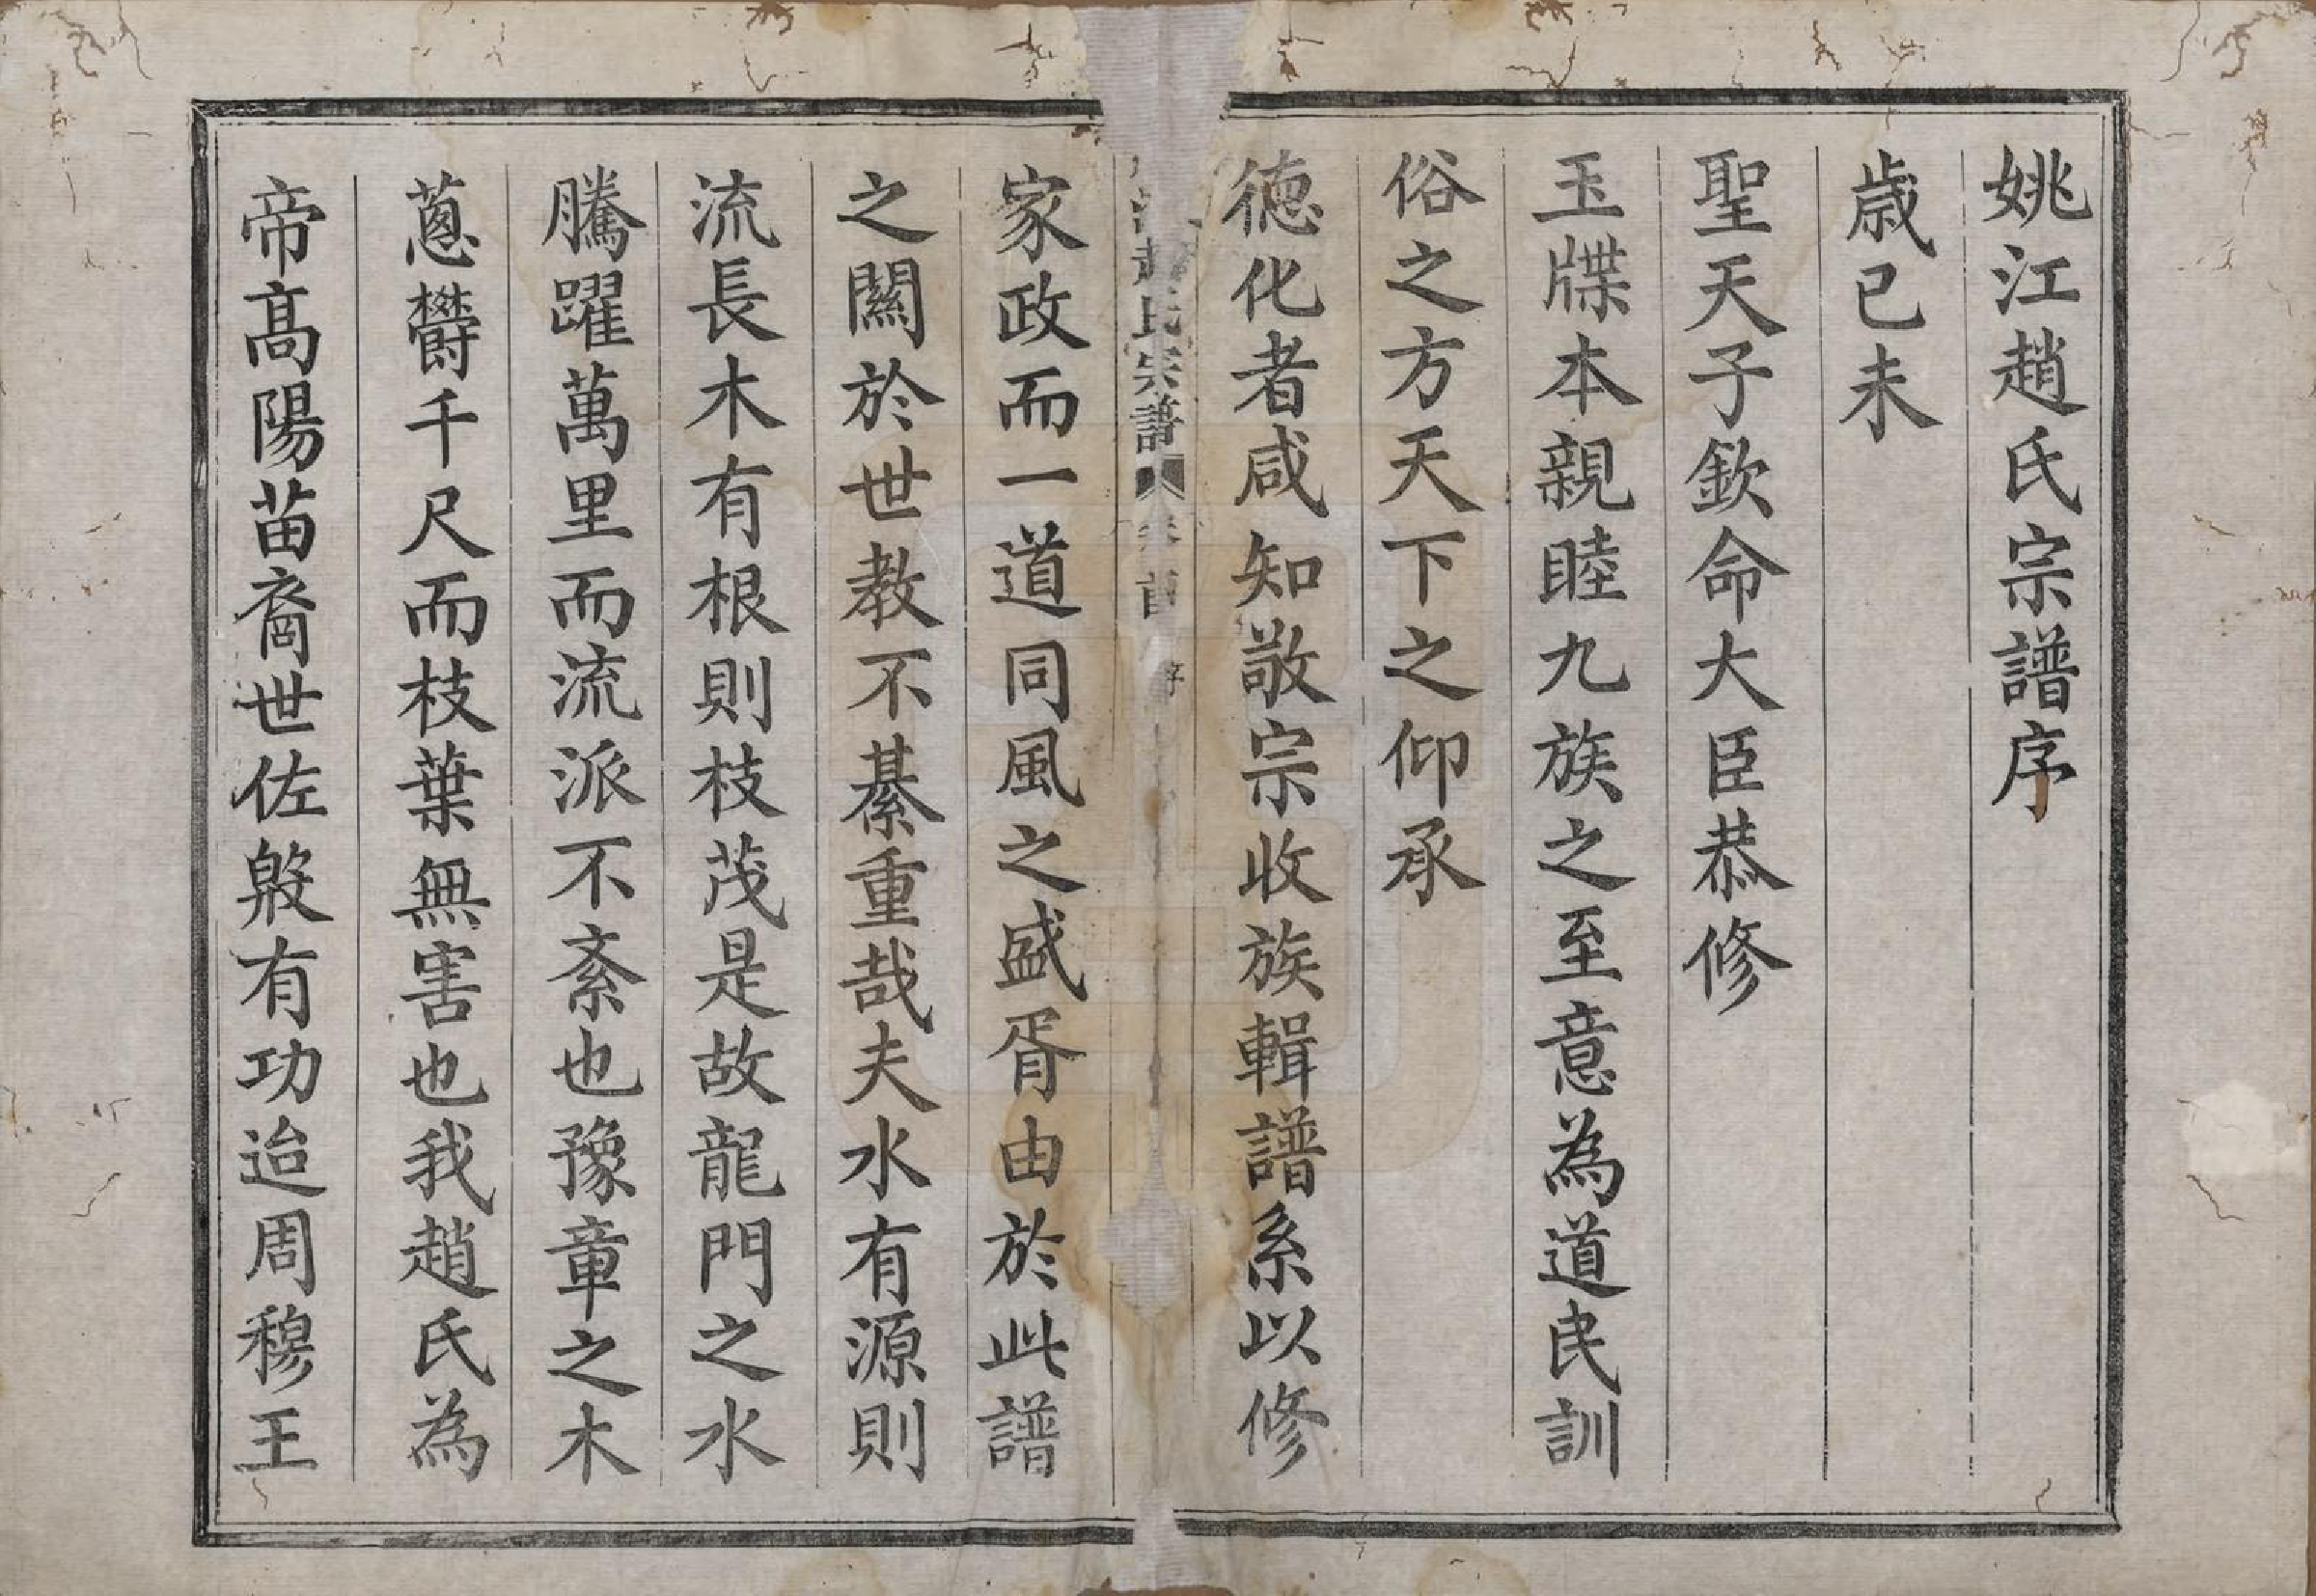 姚江趙氏宗譜序
歲己未
聖天子欽命大臣恭修
玉牒本親睦九族之至意為道民訓
俗之方天下之仰承
德化者咸知敬宗收族輯譜系以修
趙氏宗譜 卷首 序
家政而一道同風之盛胥由於此譜
之關於世教不綦重哉夫水有源則
流長木有根則枝茂是故龍門之水
騰躍萬里而流派不紊也豫章之木
蔥欎千尺而枝葉無害也我趙氏為
帝髙陽苗裔世佐殷有功迨周穆王